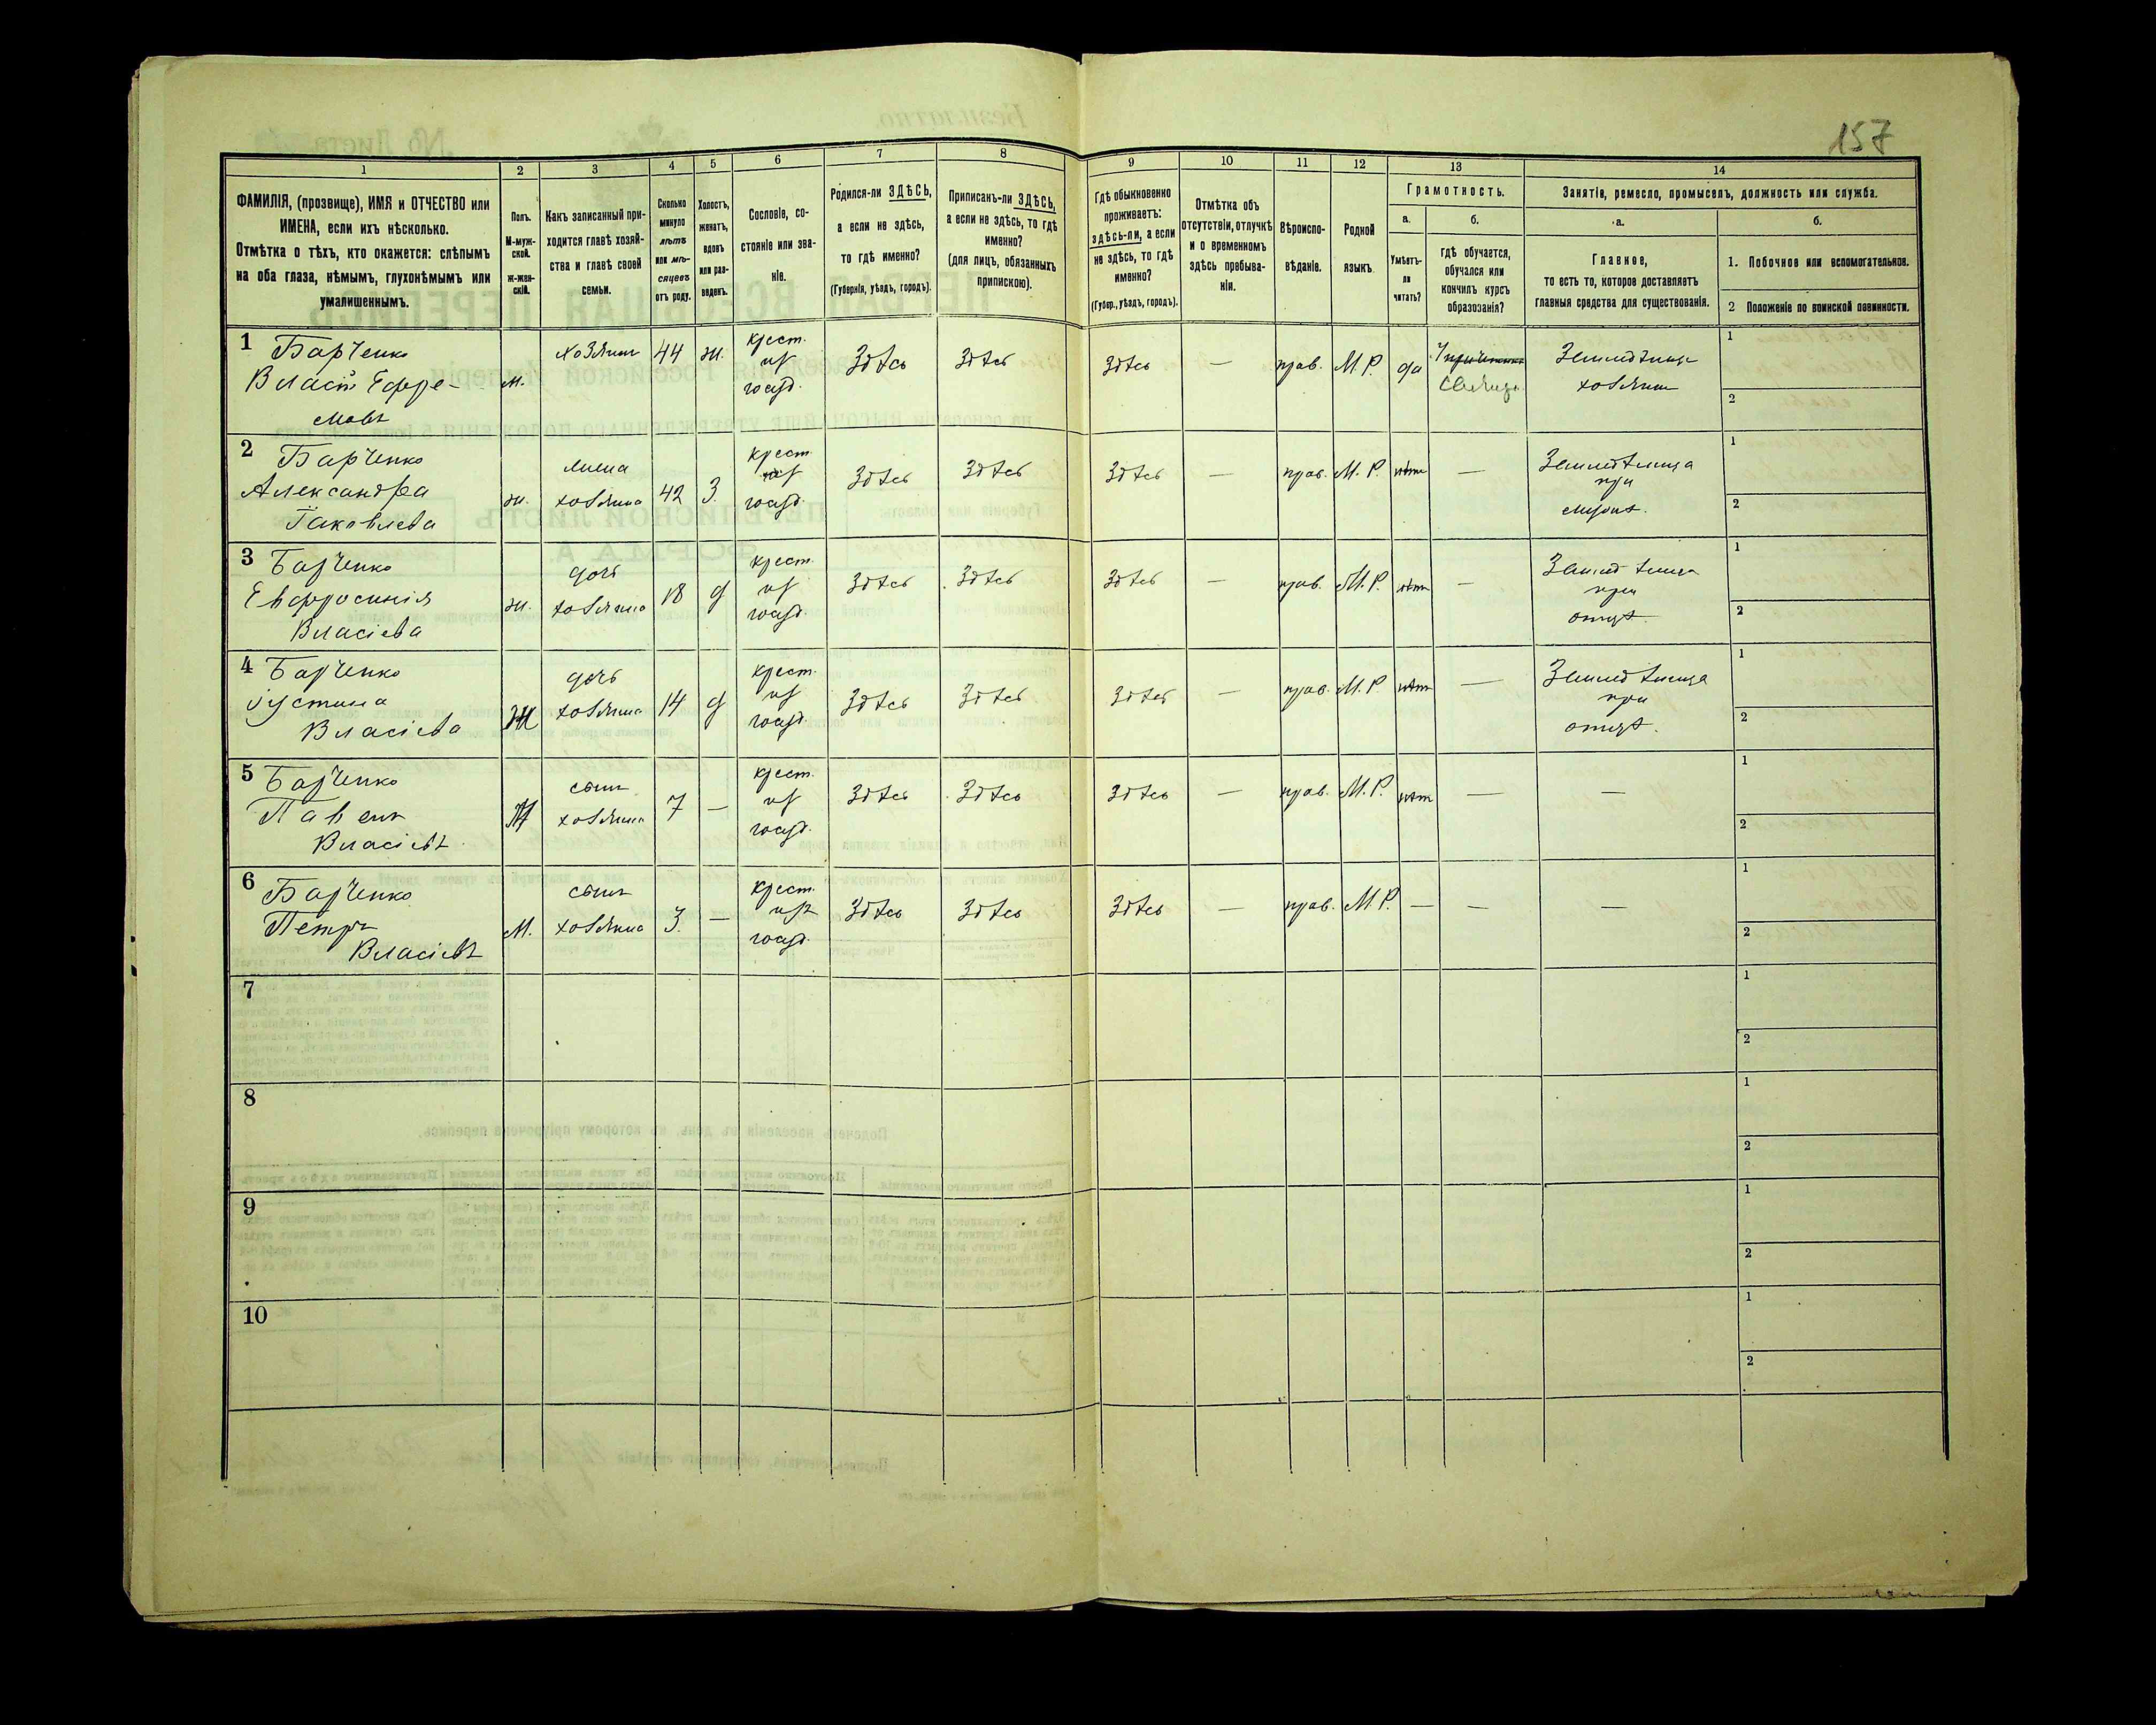 157
1 2 3 4 5 6 7 8 9 10 11 12 13 14
ФАМИЛІЯ, (прозвище), ИМЯ и ОТЧЕСТВО или
ИМЕНА, если ихъ нѣсколько.
Отмѣтка о тѣхъ, кто окажется: слѣпымъ
на оба глаза, нѣмымъ, глухонѣмымъ или
умалишеннымъ.
Полъ.
М-муж-
ской.
ж-жен-
скій.
Какъ записанный при-
ходится главѣ хозяй-
ства и главѣ своей
семьи.
Сколько
минуло
лѣтъ
или мѣ-
сяцевъ
отъ роду.
Холостъ,
женатъ,
вдовъ
или раз-
веденъ.
Сословіе, со-
стояніе или зва-
ніе.
Родился-ли ЗДѢСЬ,
а если не здѣсь,
то гдѣ именно?
(Губернія, уѣздъ, городъ).
Приписанъ-ли ЗДѢСЬ,
а если не здѣсь, то гдѣ
именно?
(для лицъ, обязанныхъ
припискою).
Гдѣ обыкновенно
проживаетъ:
здѣсь-ли, а если
не здѣсь, то гдѣ
именно?
(Губер., уѣздъ, городъ).
Отмѣтка объ
отсутствіи, отлучкѣ
и о временномъ
здѣсь пребыва-
ніи.
Вѣроиспо-
вѣданіе.
Родной
языкъ.
Грамотность.
а.
Умѣетъ-
ли
читать?
б.
гдѣ обучается,
обучался или
кончилъ курсъ
образованія?
Занятіе, ремесло, промыселъ, должность или служба.
а.
Главное,
то есть то, которое доставляетъ
главныя средства для существованія.
б.
1. Побочное или вспомогательное.
2 Положеніе по воинской повинности.
1 Барченко
Власій Ефре-
мовъ
м.
хозяинъ
44
ж.
крест.
изъ
госуд.
здѣсь
здѣсь
здѣсь
—
прав.
М.Р.
да
Земледѣлецъ
хозяинъ
1
2
2 Барченко
Александра
Іаковлева
ж.
жена
хозяина
42
З.
крест.
изъ
госуд.
здѣсь
здѣсь
здѣсь
—
прав.
М.Р.
нѣтъ
—
Земледѣлица
при
мужѣ.
1
2
3 Барченко
Евфросинія
Власіева
ж.
дочь
хозяина
18
д
крест.
изъ
госуд.
здѣсь
здѣсь
здѣсь
—
прав.
М.Р.
нѣтъ
—
Земледѣлица
при
отцѣ.
1
2
4 Барченко
Іустина
Власіева
Ж
дочь
хозяина
14
д
крест.
изъ
госуд.
здѣсь
здѣсь
здѣсь
—
прав.
М.Р
нѣтъ
—
Земледѣлица
при
отцѣ.
1
2
5 Барченко
Павелъ
Власіевъ
М
сынъ
хозяина
7
—
крест.
изъ
госуд.
здѣсь
здѣсь
здѣсь
—
прав.
М.Р.
нѣтъ
—
—
1
2
6 Барченко
Петръ
Власіевъ
М.
сынъ
хозяина
3.
—
крест.
изъ
госуд.
здѣсь
здѣсь
здѣсь
—
прав.
М.Р.
—
—
—
1
2
7
1
2
8
1
2
9
1
2
10
1
2